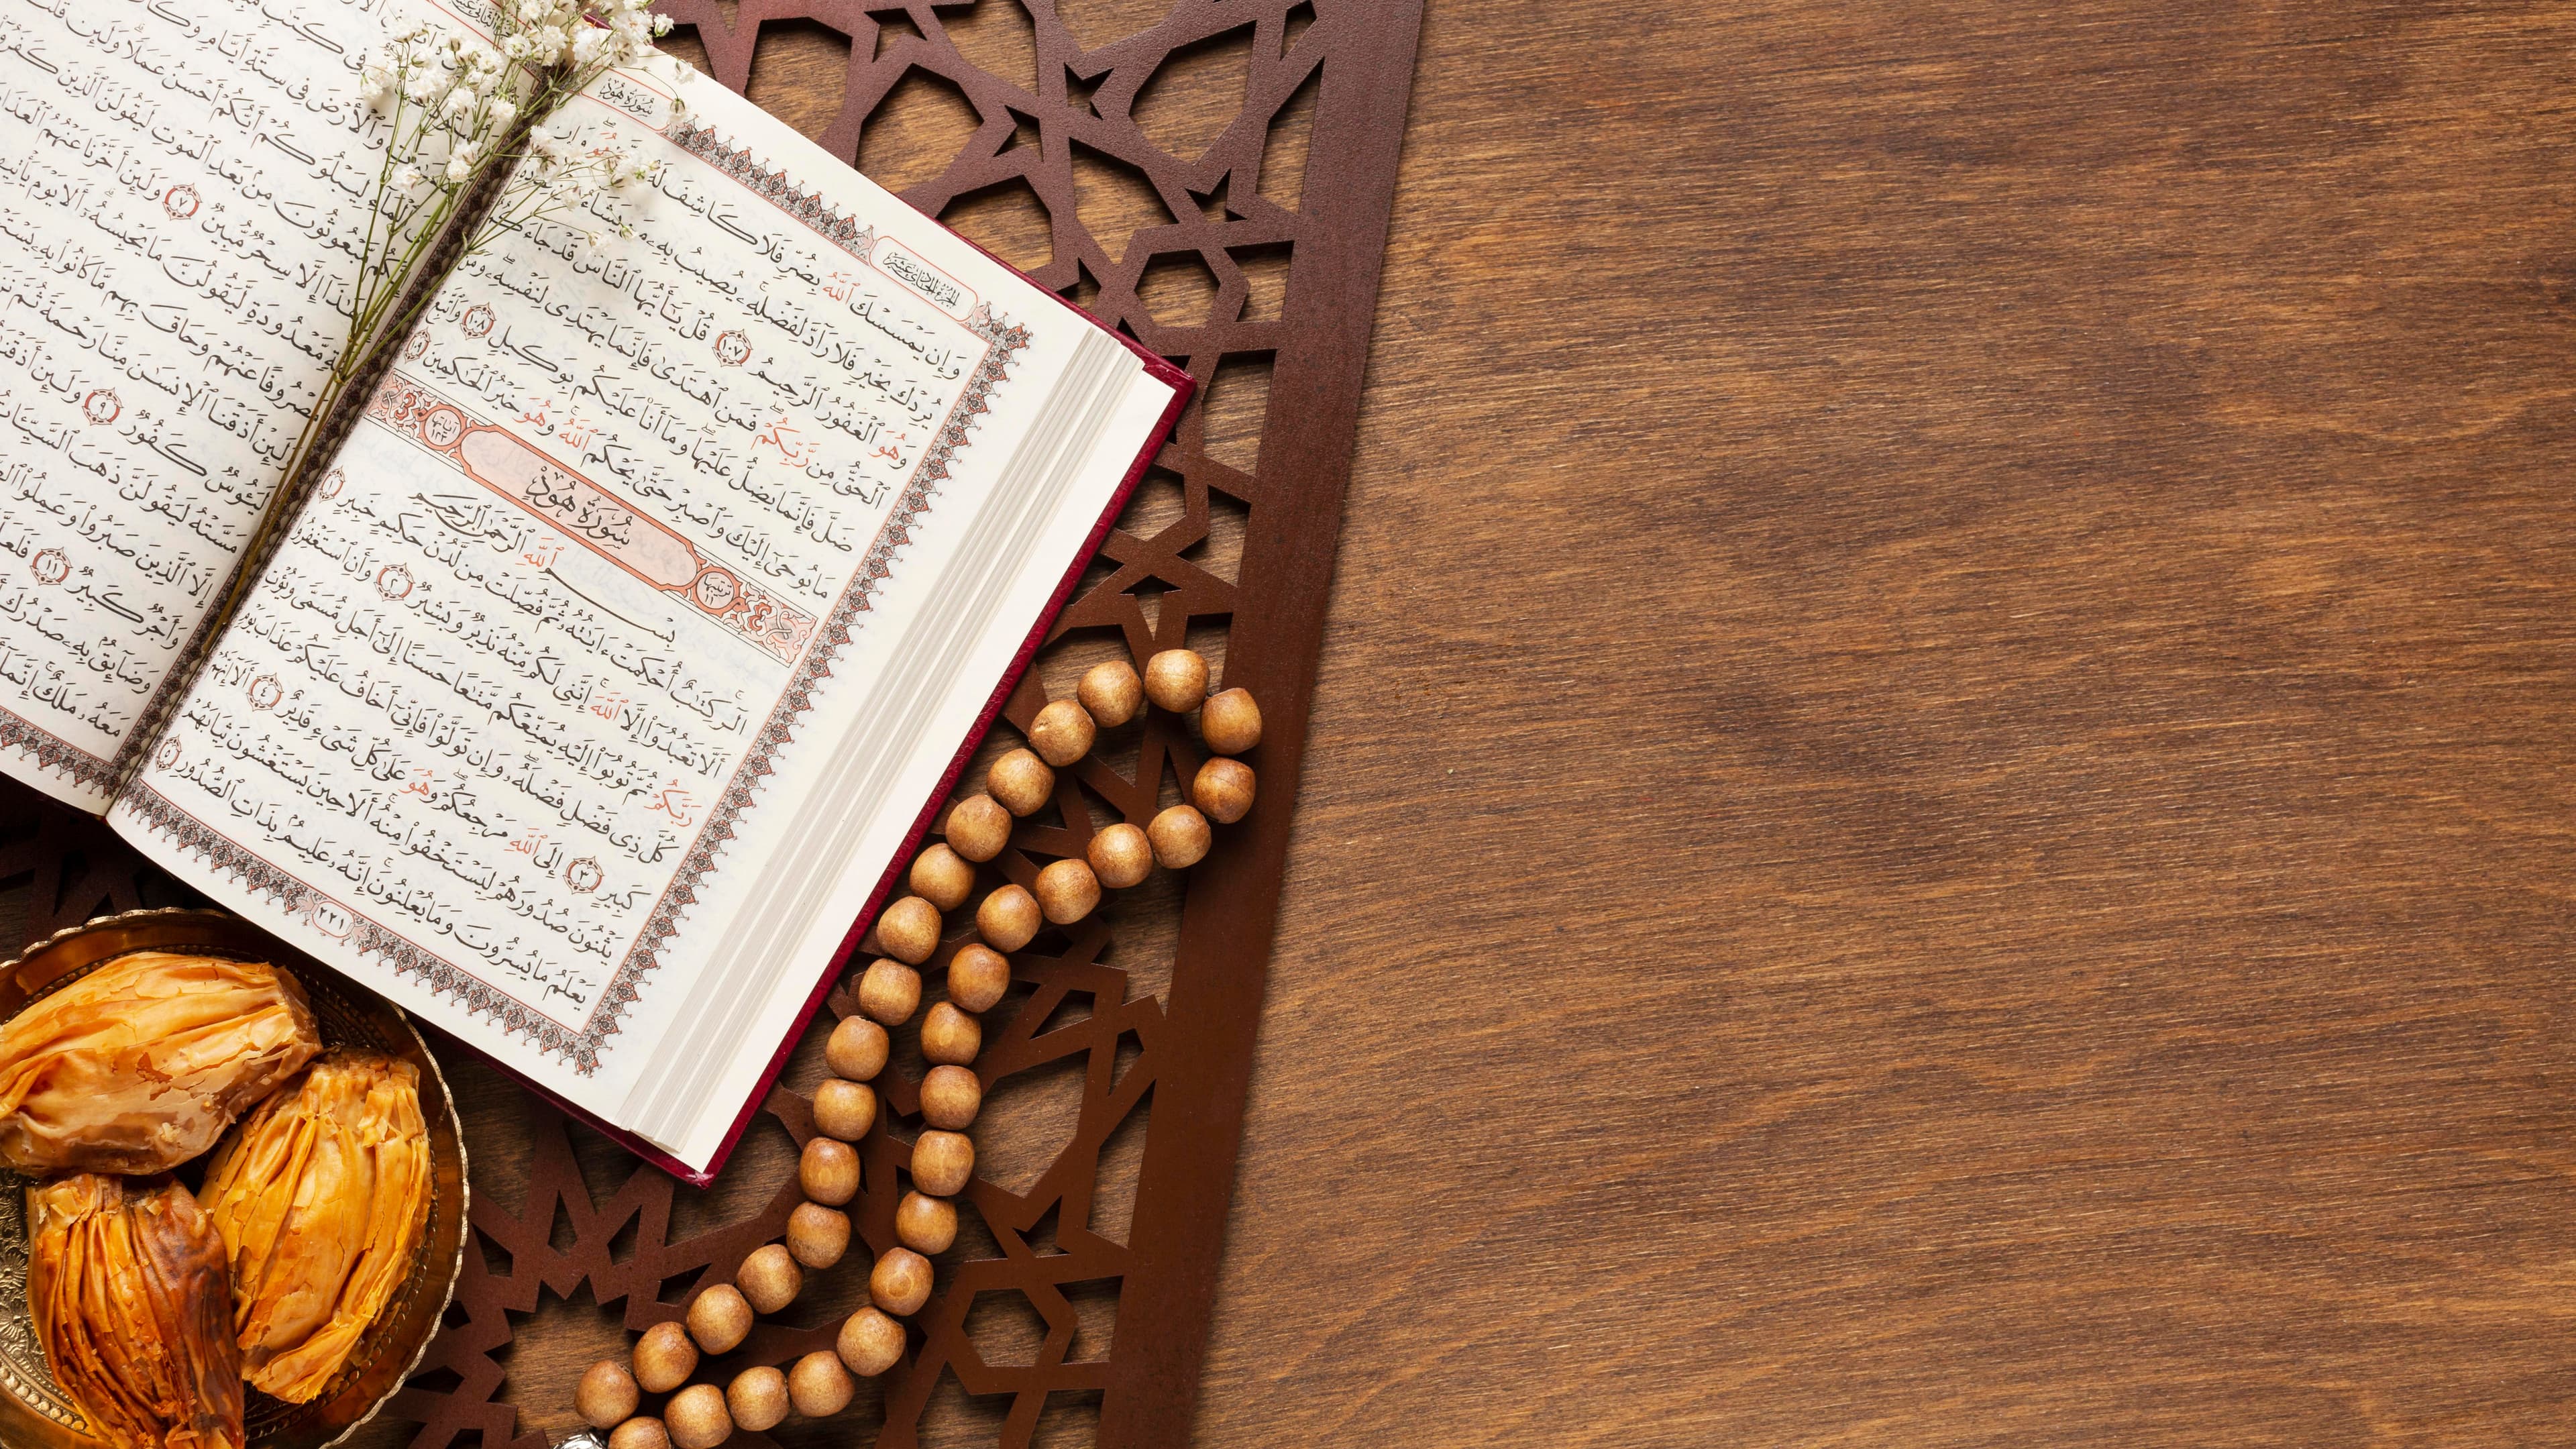 سُورَةُ هُودٍ
الجزء الحادي عشر
وَإِن يَمْسَسْكَ ٱللَّهُ بِضُرٍّ فَلَا كَاشِفَ لَهُۥٓ هُوَ وَإِن
يُرِدْكَ بِخَيْرٍ فَلَا رَآدَّ لِفَضْلِهِۦ يُصِيبُ بِهِۦ مَن يَشَآءُ
وَهُوَ ٱلْغَفُورُ ٱلرَّحِيمُ ١٠٧ قُلْ يَٰٓأَيُّهَا ٱلنَّاسُ قَدْ جَآءَكُمُ
ٱلْحَقُّ مِن رَّبِّكُمْ فَمَنِ ٱهْتَدَىٰ فَإِنَّمَا يَهْتَدِى لِنَفْسِهِۦ وَمَن
ضَلَّ فَإِنَّمَا يَضِلُّ عَلَيْهَا وَمَآ أَنَا۠ عَلَيْكُم بِوَكِيلٍ ١٠٨ وَٱتَّبِعْ
مَا يُوحَىٰٓ إِلَيْكَ وَٱصْبِرْ حَتَّىٰ يَحْكُمَ ٱللَّهُ وَهُوَ خَيْرُ ٱلْحَٰكِمِينَ ١٠٩
ترتيبها ١١ سُورَةُ هُودٍ آياتها ١٢٣
بِسْمِ ٱللَّهِ ٱلرَّحْمَٰنِ ٱلرَّحِيمِ
الٓر كِتَٰبٌ أُحْكِمَتْ ءَايَٰتُهُۥ ثُمَّ فُصِّلَتْ مِن لَّدُنْ حَكِيمٍ خَبِيرٍ ١
أَلَّا تَعْبُدُوٓا۟ إِلَّا ٱللَّهَ إِنَّنِى لَكُم مِّنْهُ نَذِيرٌ وَبَشِيرٌ ٢ وَأَنِ ٱسْتَغْفِرُوا۟
رَبَّكُمْ ثُمَّ تُوبُوٓا۟ إِلَيْهِ يُمَتِّعْكُم مَّتَٰعًا حَسَنًا إِلَىٰٓ أَجَلٍ مُّسَمًّى وَيُؤْتِ
كُلَّ ذِى فَضْلٍ فَضْلَهُۥ وَإِن تَوَلَّوْا۟ فَإِنِّىٓ أَخَافُ عَلَيْكُمْ عَذَابَ يَوْمٍ
كَبِيرٍ ٣ إِلَى ٱللَّهِ مَرْجِعُكُمْ وَهُوَ عَلَىٰ كُلِّ شَىْءٍ قَدِيرٌ ٤ أَلَآ إِنَّهُمْ
يَثْنُونَ صُدُورَهُمْ لِيَسْتَخْفُوا۟ مِنْهُ أَلَا حِينَ يَسْتَغْشُونَ ثِيَابَهُمْ
يَعْلَمُ مَا يُسِرُّونَ وَمَا يُعْلِنُونَ إِنَّهُۥ عَلِيمٌۢ بِذَاتِ ٱلصُّدُورِ ٥
٢٢١
فِى كِتَٰبٍ
وَٱلْأَرْضَ فِى سِتَّةِ أَيَّامٍ وَكَانَ
ٱلْمَآءِ لِيَبْلُوَكُمْ أَيُّكُمْ أَحْسَنُ عَمَلًا وَلَئِن قُلْتَ
مَّبْعُوثُونَ مِنۢ بَعْدِ ٱلْمَوْتِ لَيَقُولَنَّ ٱلَّذِينَ كَفَرُوٓا۟
هَٰذَآ إِلَّا سِحْرٌ مُّبِينٌ ٧ وَلَئِنْ أَخَّرْنَا عَنْهُمُ ٱلْعَذَابَ
مَّعْدُودَةٍ لَّيَقُولُنَّ مَا يَحْبِسُهُۥٓ أَلَا يَوْمَ يَأْتِيهِمْ
مَصْرُوفًا عَنْهُمْ وَحَاقَ بِهِم مَّا كَانُوا۟ بِهِۦ
وَلَئِنْ أَذَقْنَا ٱلْإِنسَٰنَ مِنَّا رَحْمَةً ثُمَّ
لَيَـُٔوسٌ كَفُورٌ ٩ وَلَئِنْ أَذَقْنَٰهُ
مَسَّتْهُ لَيَقُولَنَّ ذَهَبَ ٱلسَّيِّـَٔاتُ
إِلَّا ٱلَّذِينَ صَبَرُوا۟ وَعَمِلُوا۟
وَأَجْرٌ كَبِيرٌ ١١ فَلَعَلَّكَ
وَضَآئِقٌۢ بِهِۦ صَدْرُكَ
مَعَهُۥ مَلَكٌ إِنَّمَآ